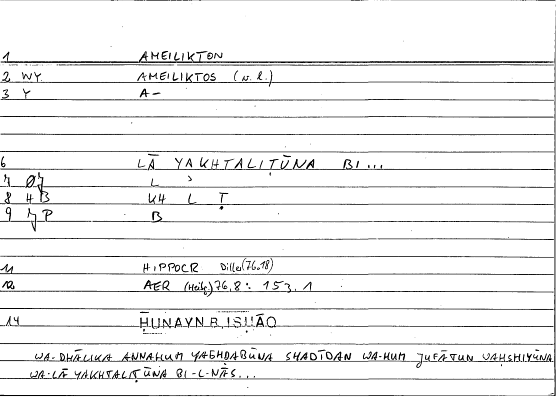 1 AMEILIKTON
2 WY AMEILIKTOS (w.l.)
3 Y A-
6 LĀ YAKHTALIṬŪNA BI...
7 L ʾ
8 HB KH L Ṭ
9 B
11 HIPPOCR Diller (76.18)
12 AER (Heib) 76,8: 153.1
14 ḤUNAYN B. ISḤĀQ
WA-DHĀLIKA ANNAHUM YAGHDABŪNA SHADĪDAN WA-HUM JUFĀTUN WAHSHIYŪNA
WA-LĀ YAKHTALIṬŪNA BI-L-NĀS...